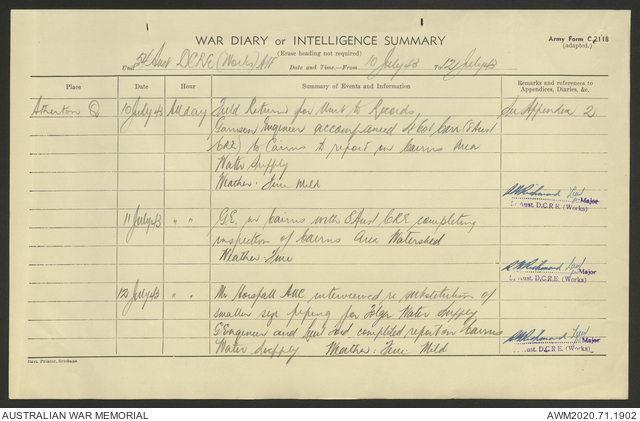 WAR DIARY or INTELLIGENCE SUMMARY
(Erase heading not required)
Army Form C.2118
(adapted.)
Unit 54 Aust D.C.R.E. (Works) AIF Date and Time.—From 10 July 43 To 12 July 43
Place Date Hour Summary of Events and Information Remarks and references to Appendices, Diaries, &c.
Atherton Q 10 July 43 All day Field Return for Unit to Records, See Appendix 2
Garrison Engineer accompanied Lt Col Carr (8 Aust
CRE) to Cairns to report on Cairns Area
Water Supply
Weather: Fine Mild
Lieut
for Major
Aust. D.C.R.E. (Works)
11 July 43 " " G.E. in Cairns with 8 Aust CRE completing
inspection of Cairns Area Watershed
Weather Fine
Lieut
for Major
Aust. D.C.R.E. (Works)
12 July 43 " " Mr Horsfall AME interviewed re substitution of
smaller size piping for Water Supply
G Engineer and completed report on Cairns
Water Supply Weather: Fine Mild
Lieut
for Major
Aust. D.C.R.E. (Works)
Govt. Printer, Brisbane
AUSTRALIAN WAR MEMORIAL
AWM2020.71.1902